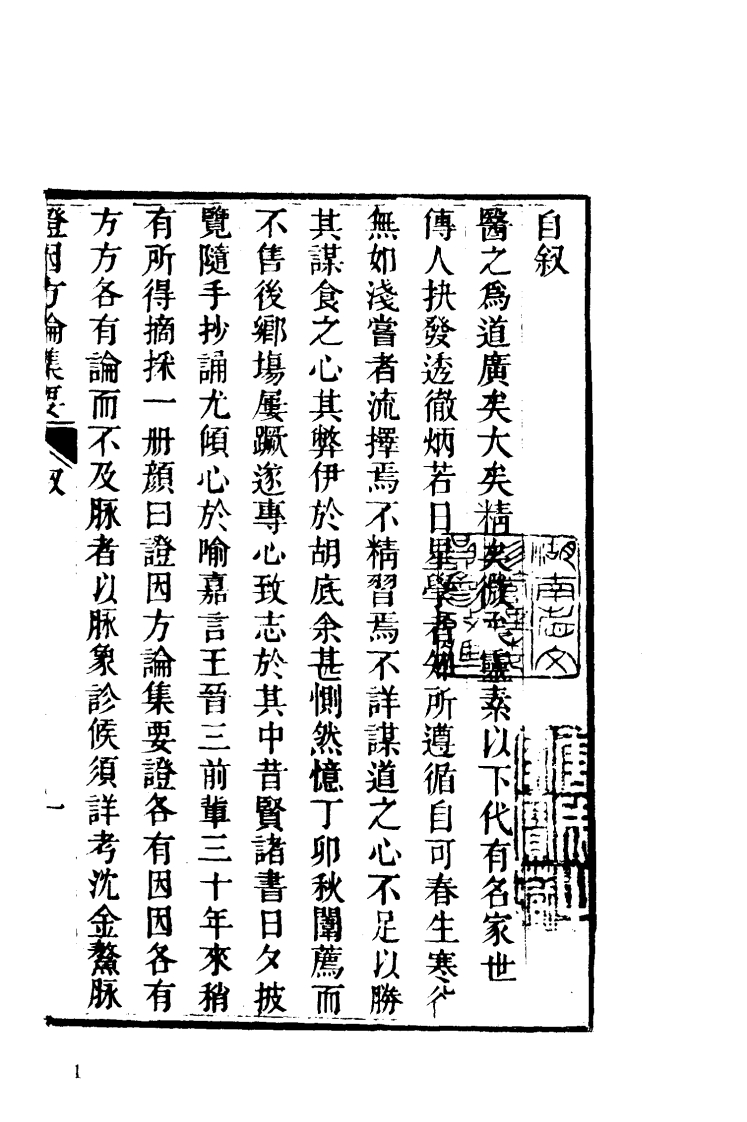 自叙
醫之爲道廣矣大矣精矣微矣靈素以下代有名家世
傳人抉發透徹炳若日星學者知所遵循自可春生寒谷
無如淺嘗者流擇焉不精習焉不詳謀道之心不足以勝
其謀食之心其弊伊於胡底余甚惻然憶丁卯秋闈薦而
不售後鄉塲屢蹶遂專心致志於其中昔賢諸書日夕披
覽隨手抄誦尤傾心於喻嘉言王晉三前輩三十年來稍
有所得摘採一册顔曰證因方論集要證各有因因各有
方方各有論而不及脉者以脉象診候須詳考沈金鰲脉
證因方論集要 叙 一
湖南
1